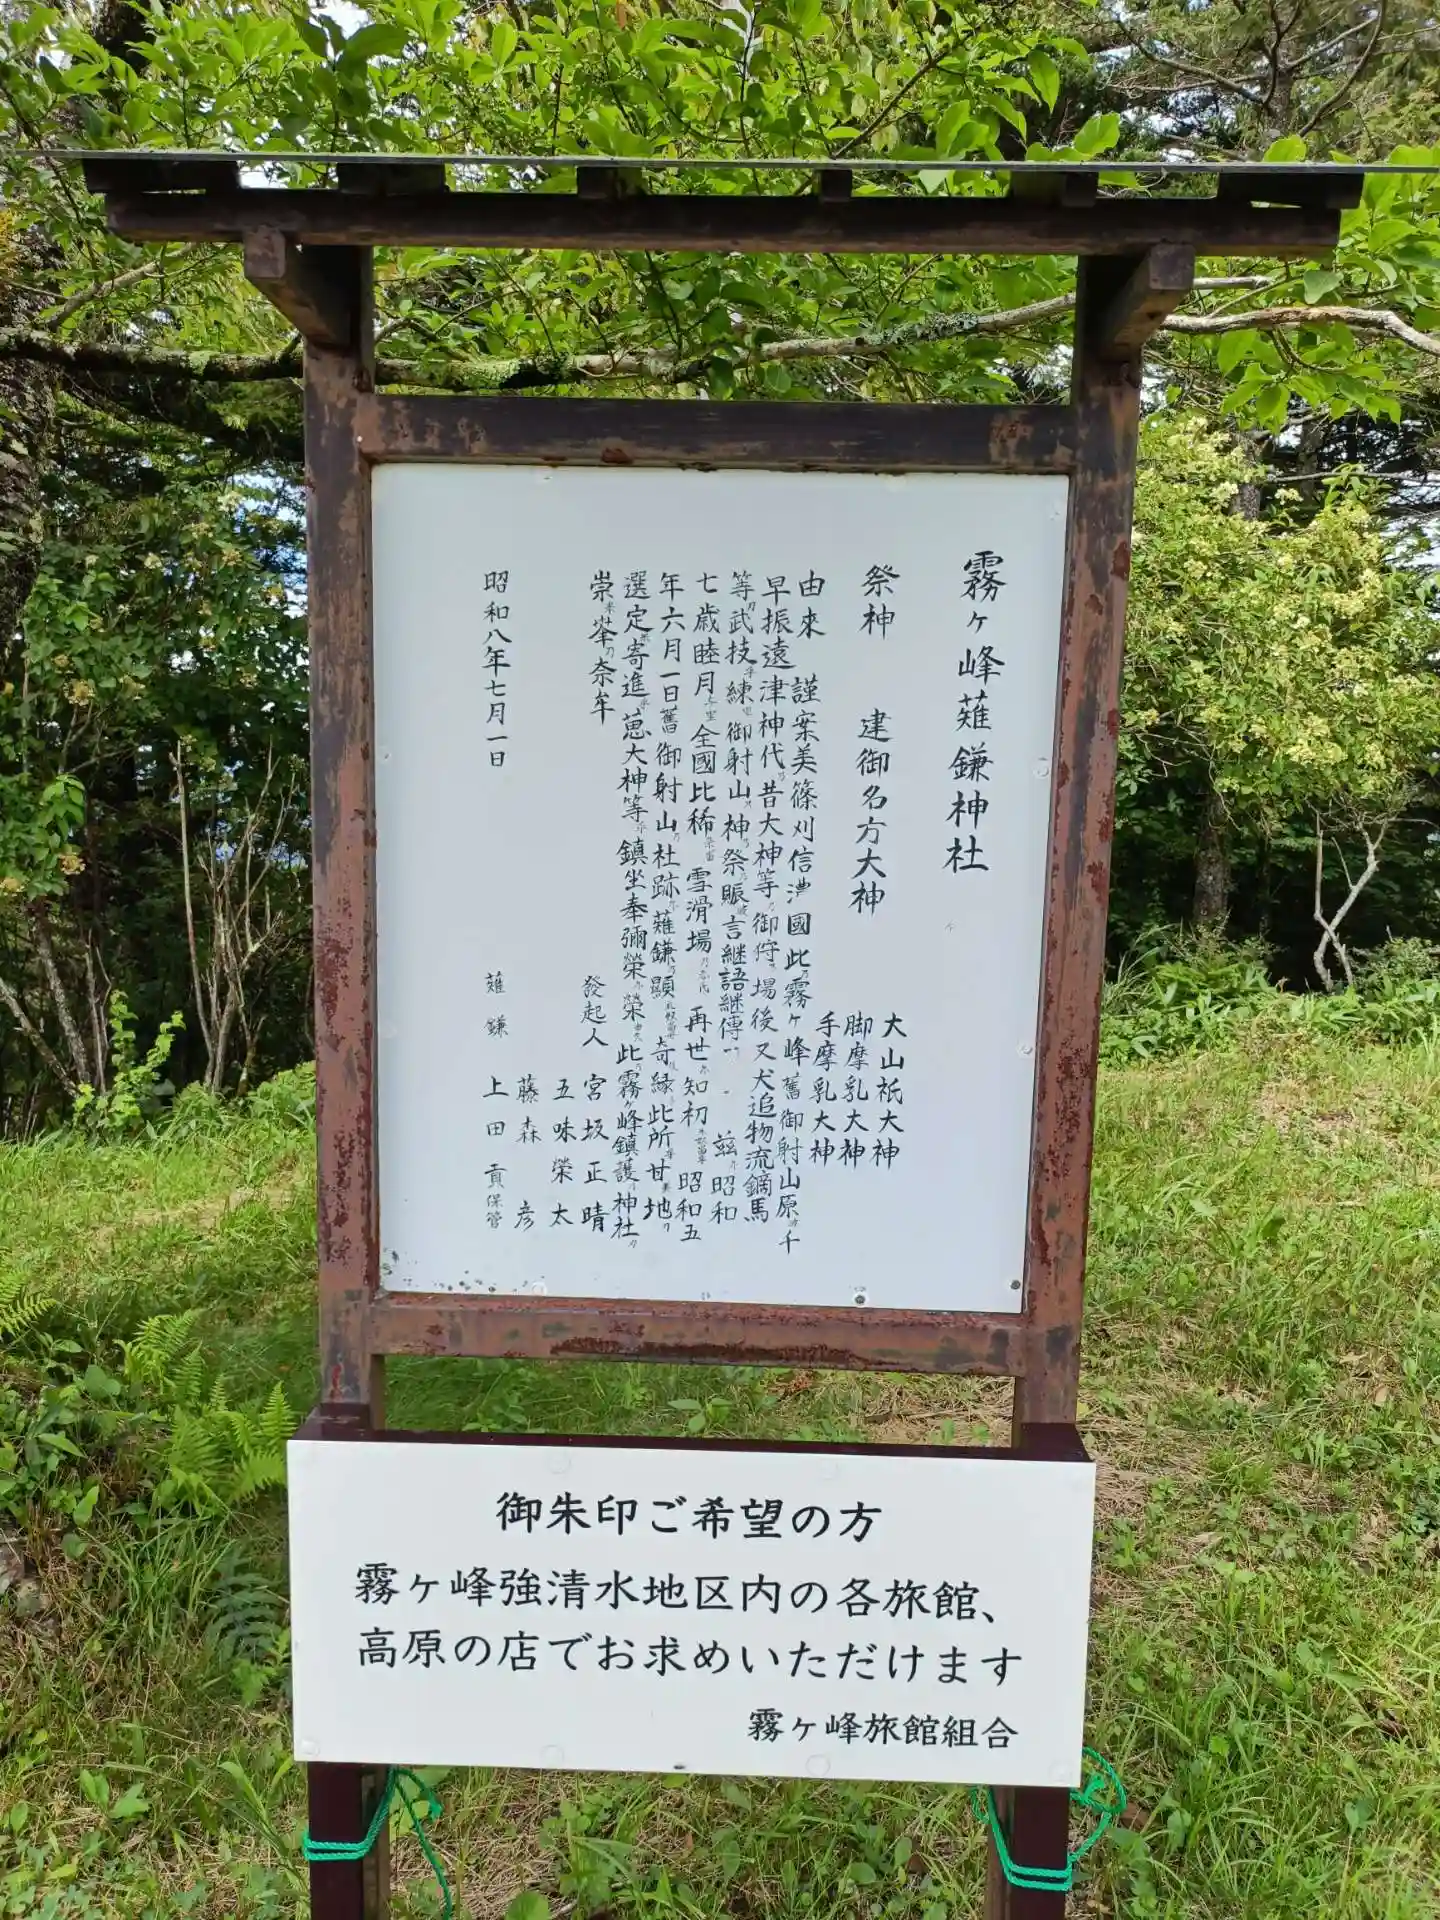 霧ヶ峰薙鎌神社
祭神 建御名方大神
大山祇大神
脚摩乳大神
手摩乳大神
由來 謹案美篠刈信濃國此乃霧ヶ峰舊御射山原波千
早振遠津神代乃昔大神等乃御狩乃場後又犬追物流鏑馬
等乃武技乎練里御射山乃神乃祭賑波言継語継傳 茲尓昭和
七歳睦月与里全國比稀奈留雪滑場 再世尓知初 昭和五
年六月一日舊御射山乃社跡尓薙鎌乃顯 奇縁 此所乎甘美地乃
選定寄進 蒽大神等乎鎮坐奉彌榮尓榮 此乃霧ヶ峰鎮護乃神社乃
崇 峯乃奈牟
發起人 宮坂正晴
五味榮太
藤森 彦
昭和八年七月一日
薙鎌 上田貢保管
御朱印ご希望の方
霧ヶ峰強清水地区内の各旅館、
高原の店でお求めいただけます
霧ヶ峰旅館組合